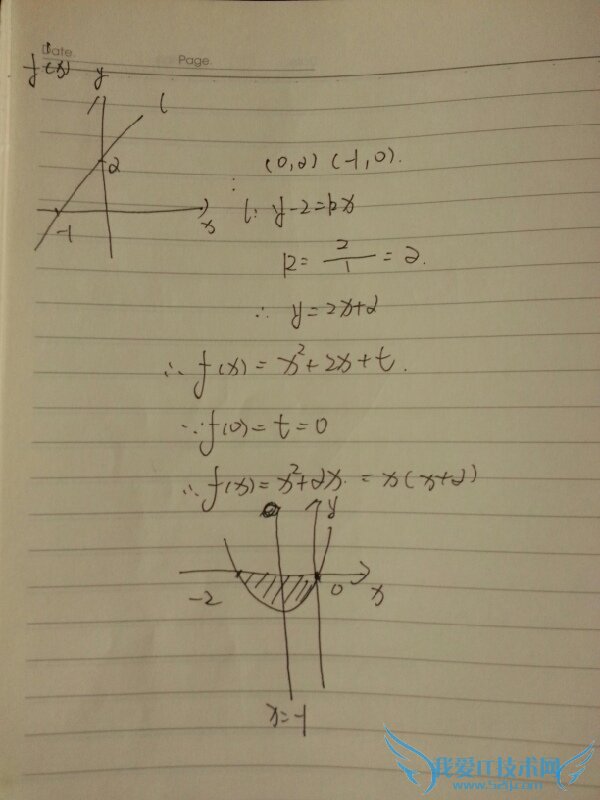 Date.
Page.
f'(x) y
l
2
-1
x
(0,2) (-1,0).
l: y-2=kx
k= 2/1 =2.
∴ y=2x+2
∴ f(x) = x²+2x+t.
∵ f(0)=t=0
∴ f(x)=x²+2x. = x(x+2)
y
-2
0
x
x=-1
我爱IT技术网
www.52ij.com